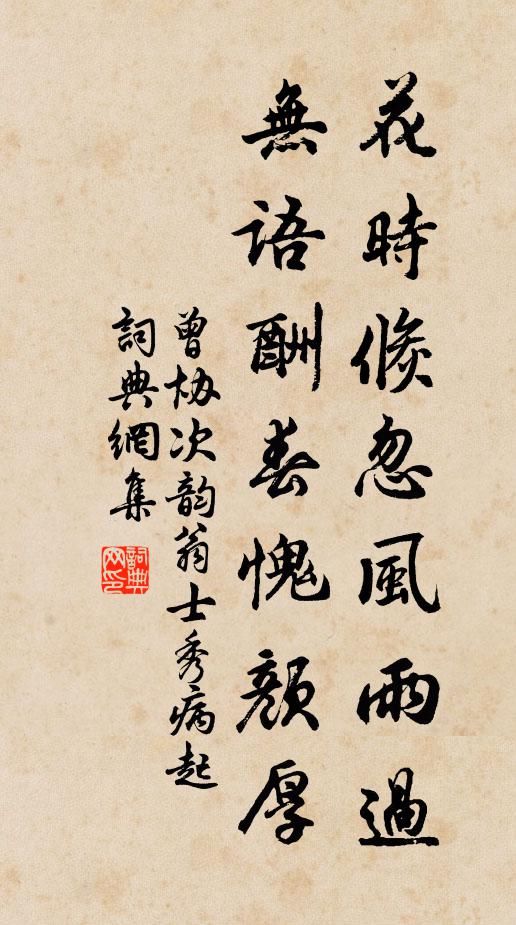 花時倏忽風雨過
無語酬春愧顏厚
曾協次韵翁士秀病起
詞典網集
詞典網印